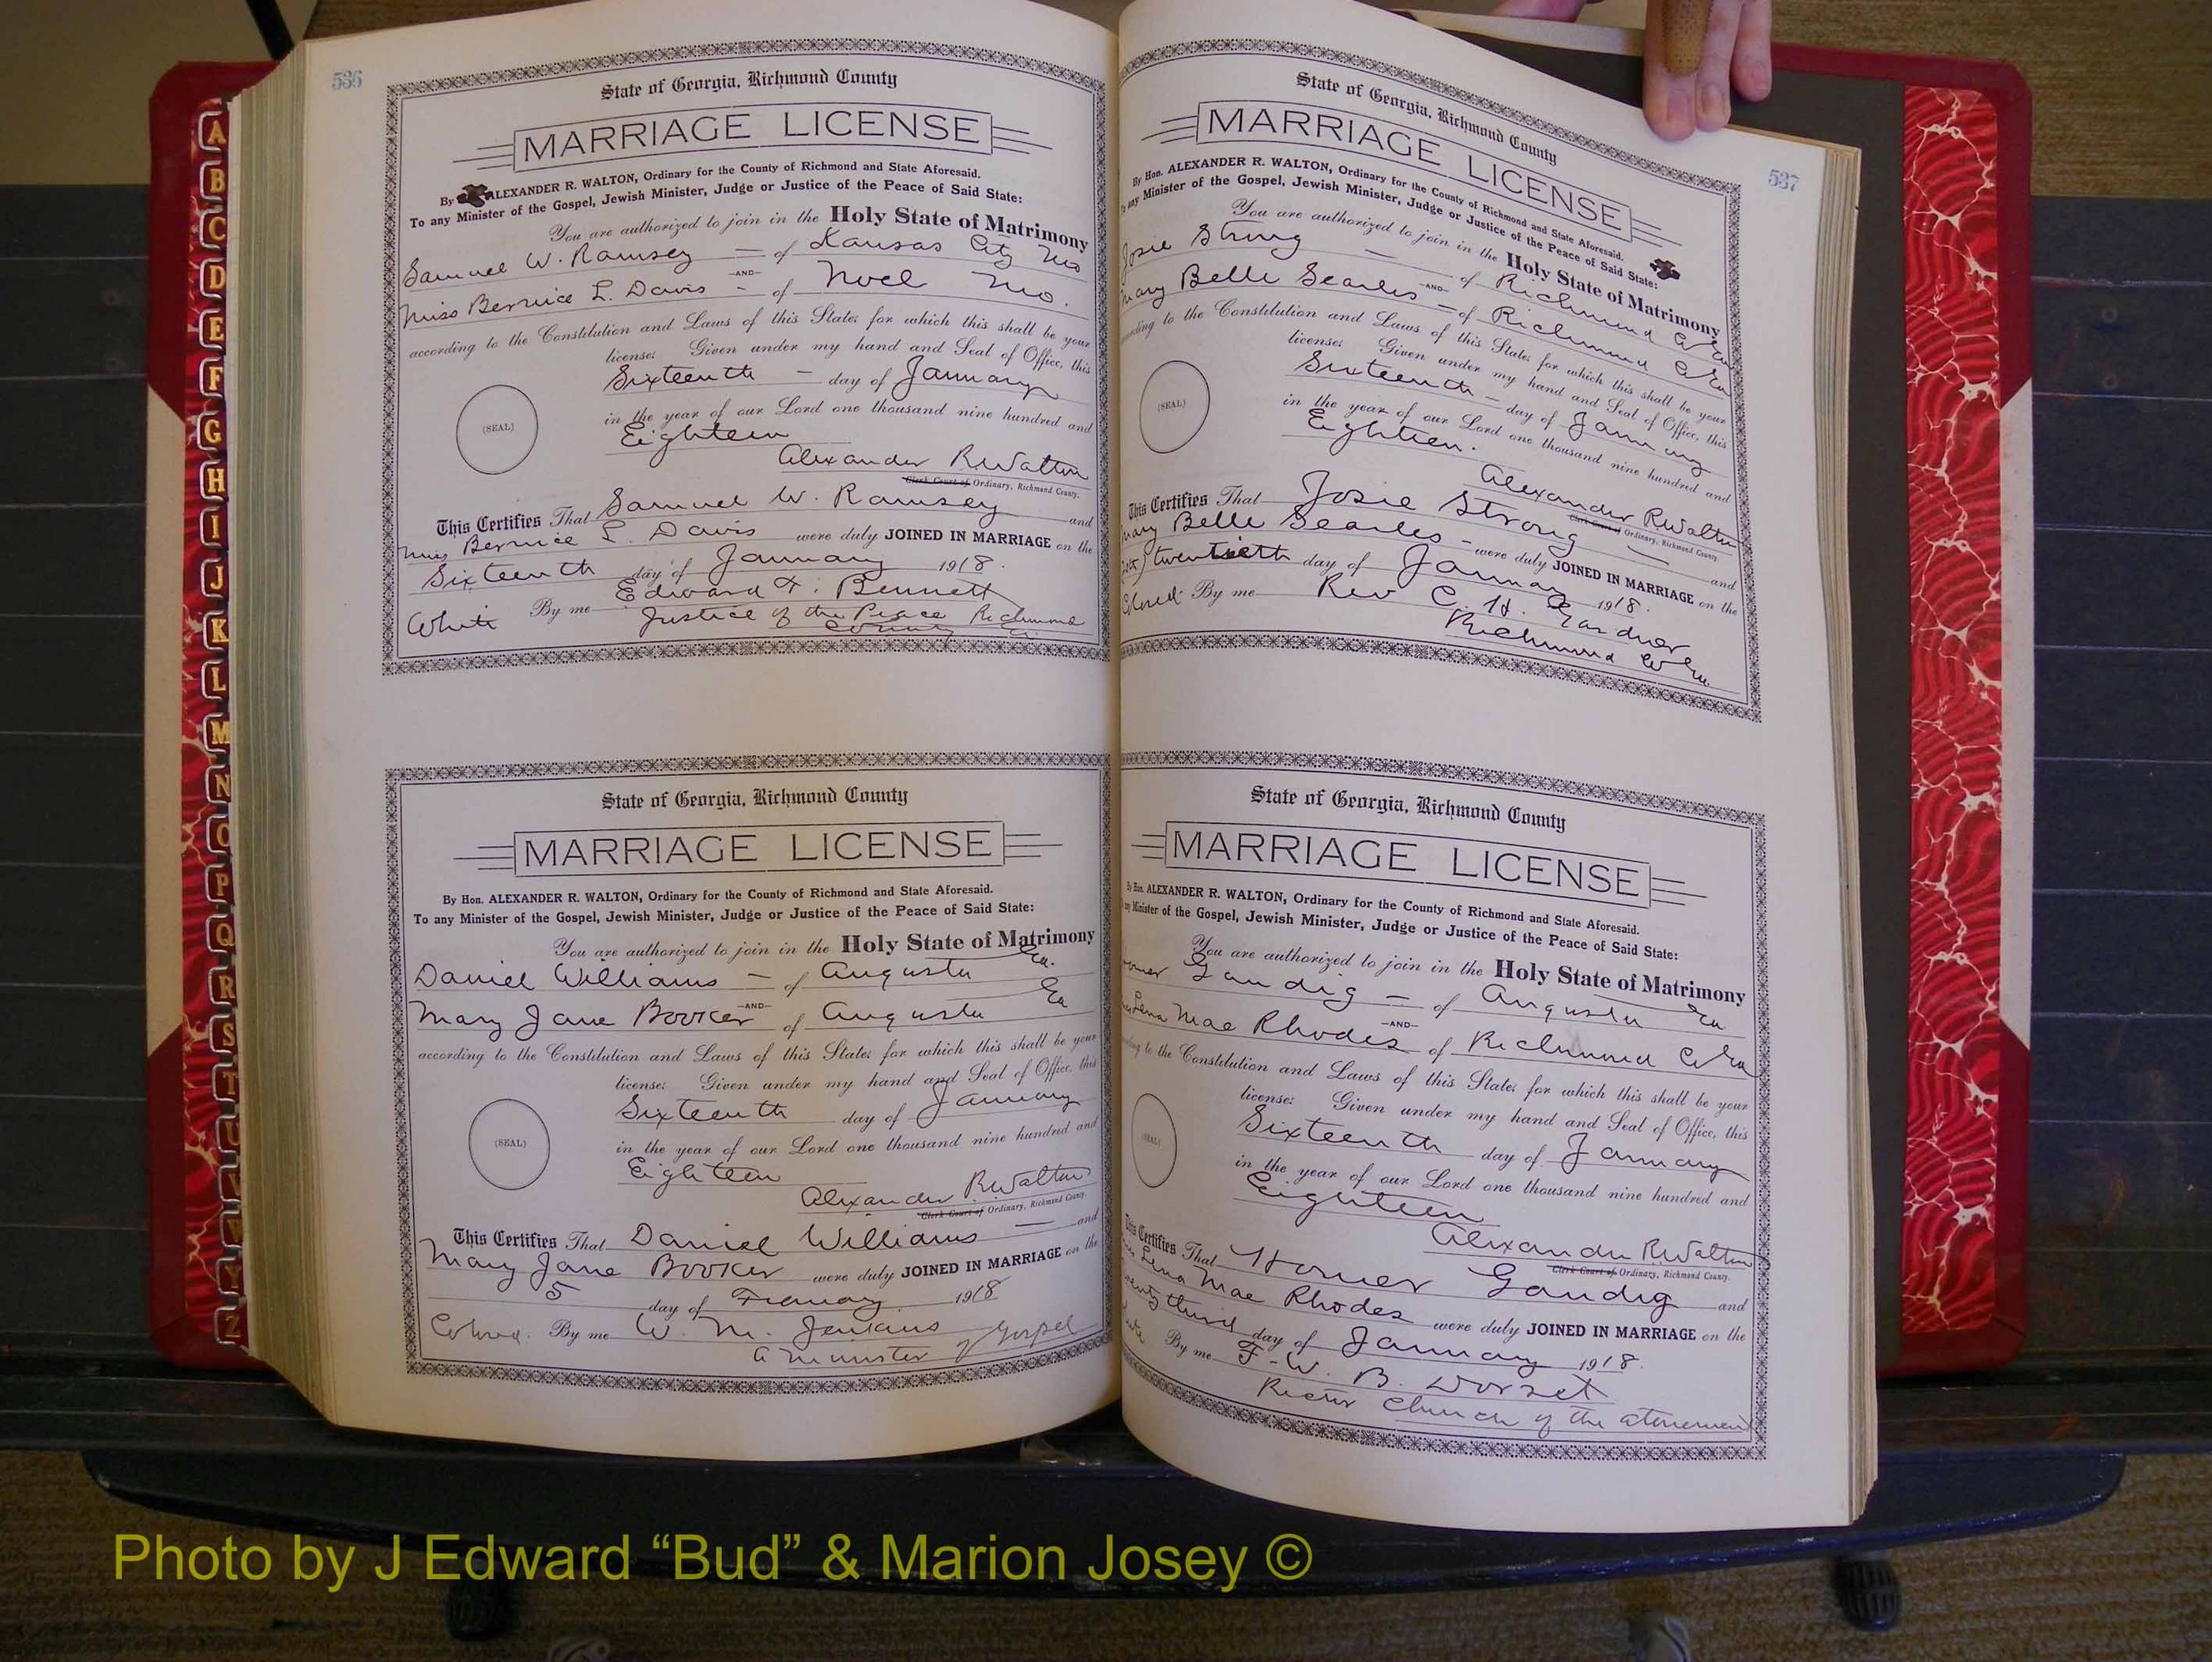 536
State of Georgia, Richmond County
MARRIAGE LICENSE
By ALEXANDER R. WALTON, Ordinary for the County of Richmond and State Aforesaid.
To any Minister of the Gospel, Jewish Minister, Judge or Justice of the Peace of Said State:
You are authorized to join in the Holy State of Matrimony
Samuel W. Ramsey — of Kansas City Mo
AND
Miss Bernice L. Davis - of Noel Mo.
according to the Constitution and Laws of this State; for which this shall be your
license: Given under my hand and Seal of Office, this
Sixteenth — day of January
in the year of our Lord one thousand nine hundred and
(SEAL)
Eighteen
Alexander R Walton
Clerk Court of Ordinary, Richmond County.
This Certifies That Samuel W. Ramsey and
Miss Bernice L. Davis were duly JOINED IN MARRIAGE on the
Sixteenth day of January 1918.
White By me Edward F. Bennett
Justice of the Peace Richmond
County Ga.
State of Georgia, Richmond County
MARRIAGE LICENSE
By Hon. ALEXANDER R. WALTON, Ordinary for the County of Richmond and State Aforesaid.
To any Minister of the Gospel, Jewish Minister, Judge or Justice of the Peace of Said State:
You are authorized to join in the Holy State of Matrimony
Daniel Williams — of Augusta Ga.
AND
Mary Jane Booker of Augusta Ga
according to the Constitution and Laws of this State; for which this shall be your
license: Given under my hand and Seal of Office, this
Sixteenth day of January
in the year of our Lord one thousand nine hundred and
(SEAL)
Eighteen
Alexander R Walton
Clerk Court of Ordinary, Richmond County.
This Certifies That Daniel Williams — and
Mary Jane Booker were duly JOINED IN MARRIAGE on the
5 day of 1918
Colored. By me W. M. Jenkins
a Minister of Gospel
537
State of Georgia, Richmond County
MARRIAGE LICENSE
By Hon. ALEXANDER R. WALTON, Ordinary for the County of Richmond and State Aforesaid.
To any Minister of the Gospel, Jewish Minister, Judge or Justice of the Peace of Said State:
You are authorized to join in the Holy State of Matrimony
Josie Strong — of Richmond Co Ga
AND
Mary Belle Searles — of Richmond Co Ga
according to the Constitution and Laws of this State; for which this shall be your
license: Given under my hand and Seal of Office, this
Sixteenth — day of January
in the year of our Lord one thousand nine hundred and
(SEAL)
Eighteen.
Alexander R Walton
Clerk Court of Ordinary, Richmond County.
This Certifies That Josie Strong — and
Mary Belle Searles - were duly JOINED IN MARRIAGE on the
twentieth day of January 1918.
Colored By me Rev C. H. Gardner
Richmond Co Ga.
State of Georgia, Richmond County
MARRIAGE LICENSE
By Hon. ALEXANDER R. WALTON, Ordinary for the County of Richmond and State Aforesaid.
any Minister of the Gospel, Jewish Minister, Judge or Justice of the Peace of Said State:
You are authorized to join in the Holy State of Matrimony
Gandig — of Augusta Ga
AND
Lena Mae Rhodes of Richmond Co Ga
to the Constitution and Laws of this State; for which this shall be your
license: Given under my hand and Seal of Office, this
Sixteenth day of January
in the year of our Lord one thousand nine hundred and
(SEAL)
Eighteen
Alexander R Walton
Clerk Court of Ordinary, Richmond County.
This Certifies That Homer Gandig and
Lena Mae Rhodes were duly JOINED IN MARRIAGE on the
third day of January 1918.
By me F. W. B. Dorset
Rector Church of the Atonement
A
B
C
D
E
F
G
H
I
J
K
L
M
N
O
P
Q
R
S
T
U
V
W
Y
Z
Photo by J Edward “Bud” & Marion Josey ©